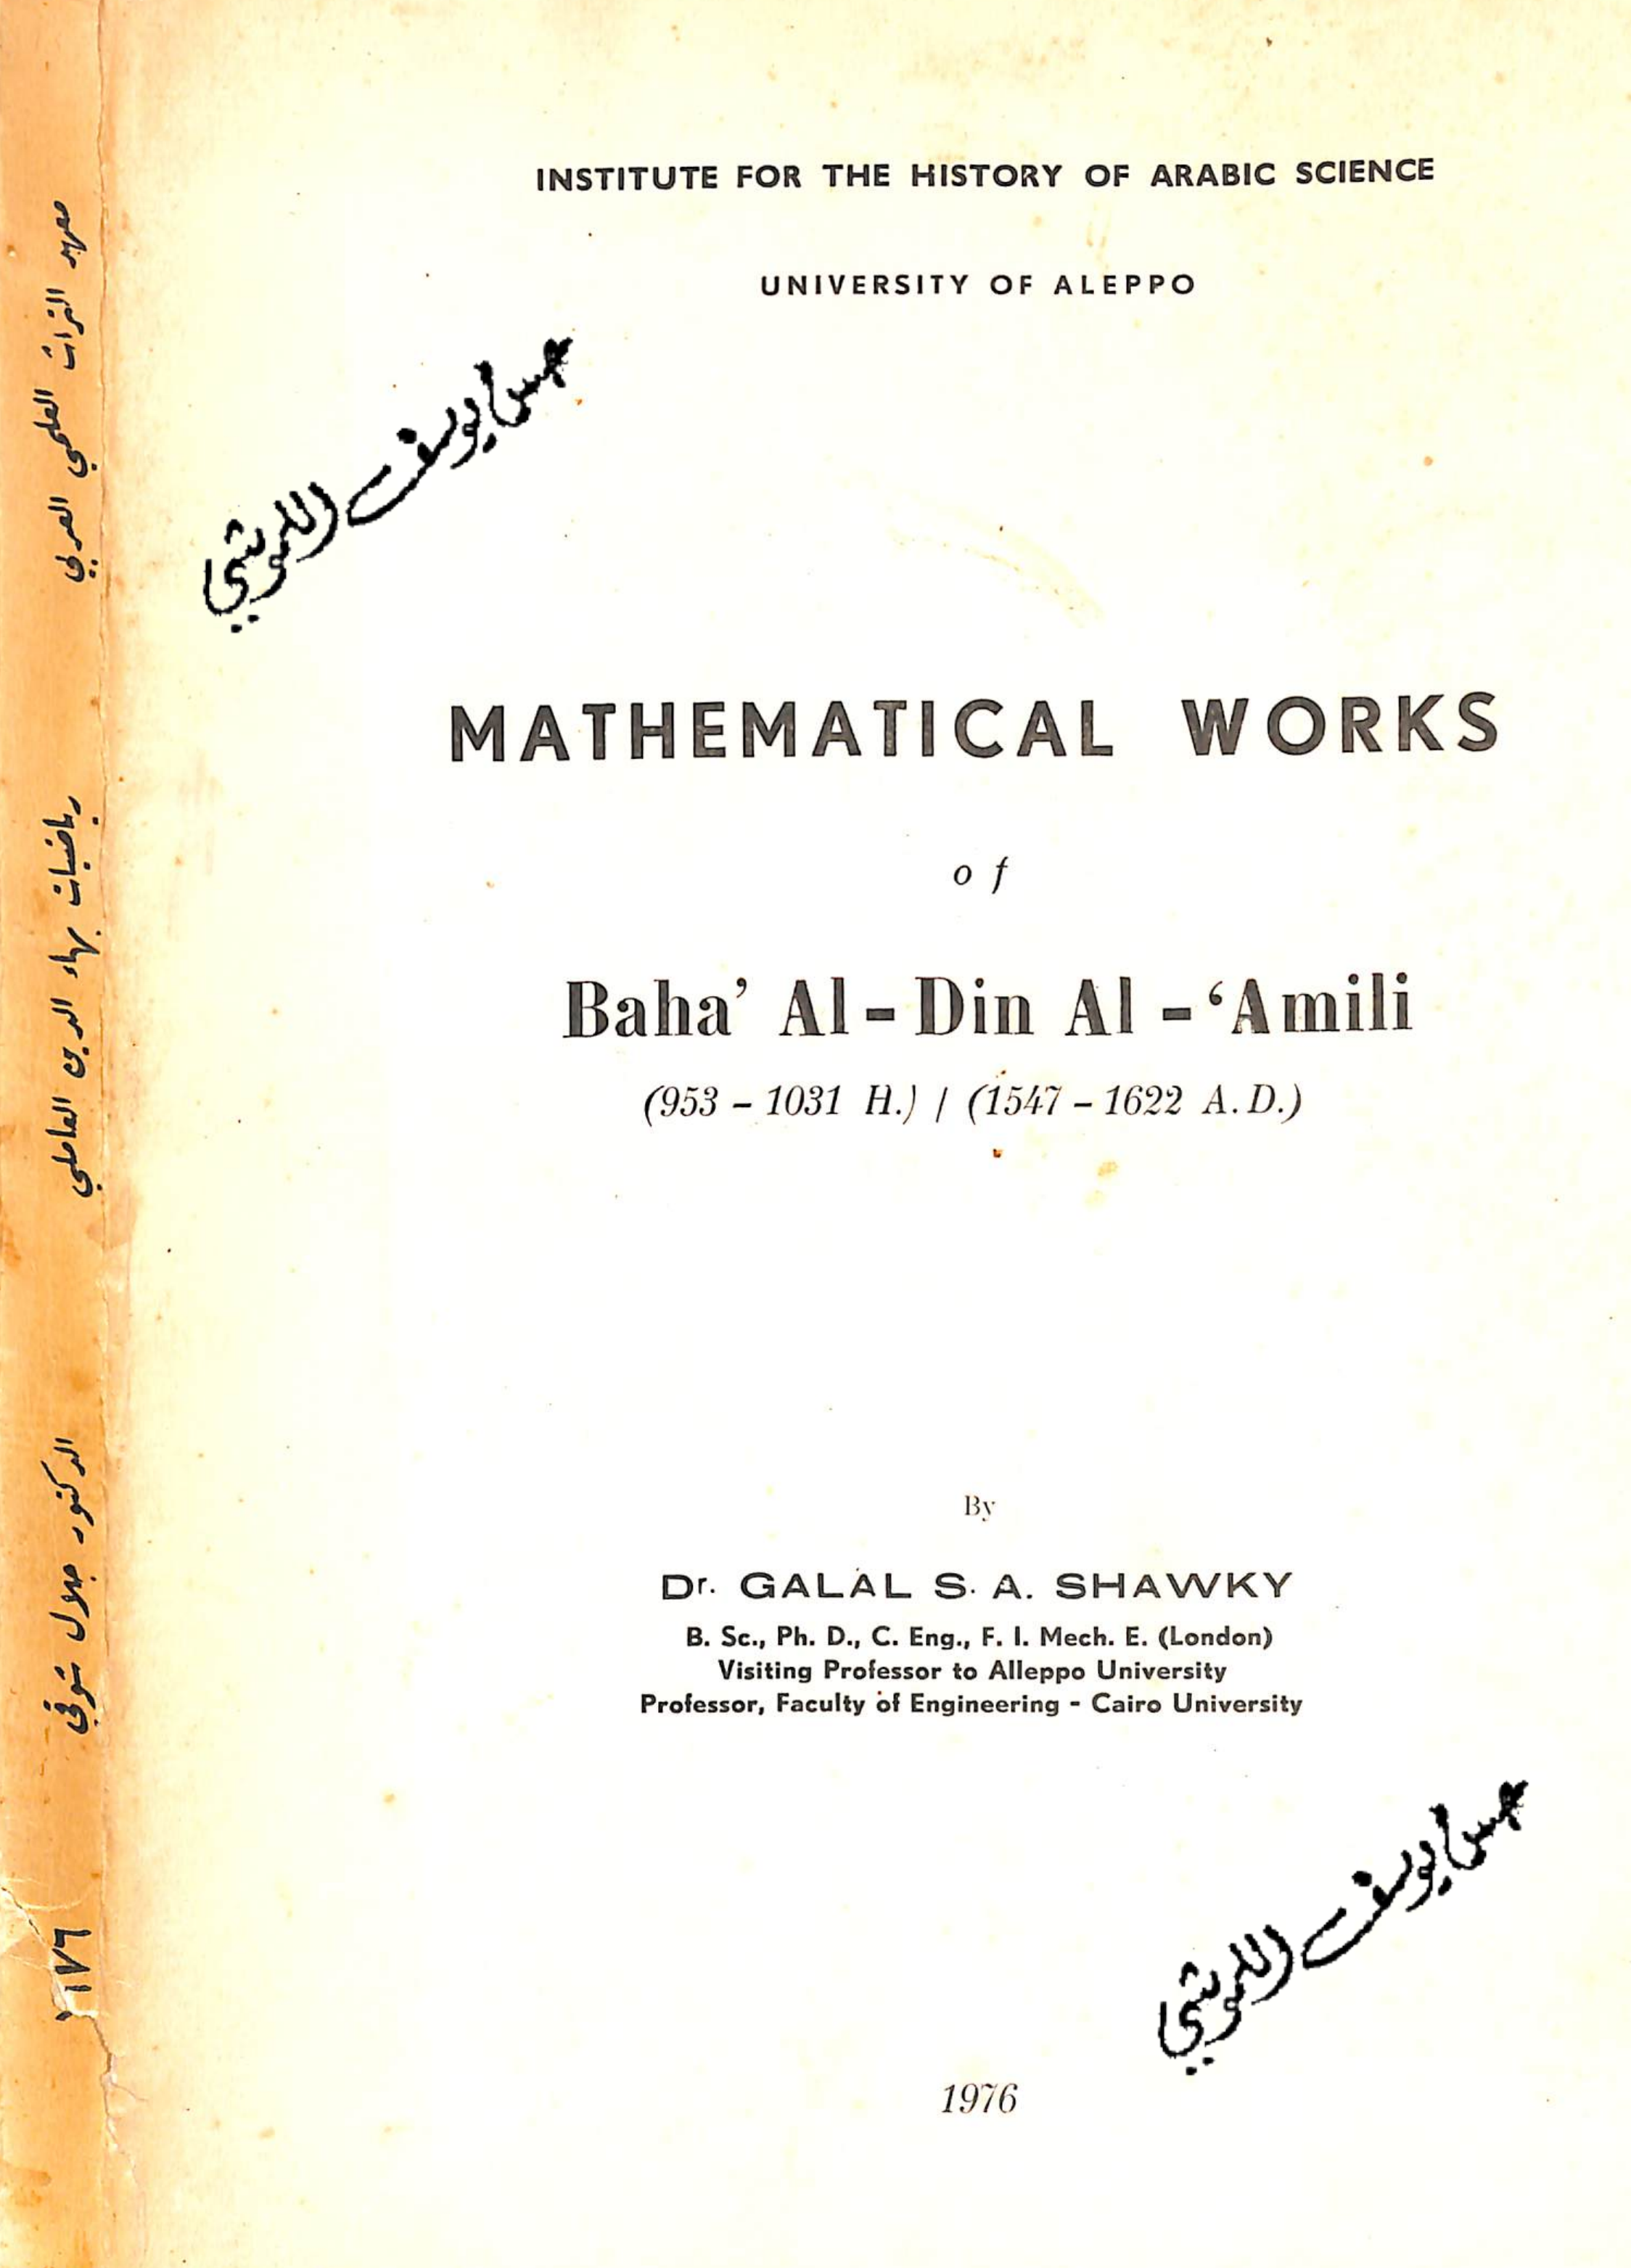 INSTITUTE FOR THE HISTORY OF ARABIC SCIENCE
UNIVERSITY OF ALEPPO
MATHEMATICAL WORKS
of
Baha’ Al-Din Al-‘Amili
(953 – 1031 H.) / (1547 – 1622 A.D.)
By
Dr. GALAL S. A. SHAWKY
B. Sc., Ph. D., C. Eng., F. I. Mech. E. (London)
Visiting Professor to Alleppo University
Professor, Faculty of Engineering - Cairo University
1976
معهد التراث العلمي العربي
رياضيات بهاء الدين العاملي
الدكتور جلال شوقي
يوسف
يوسف